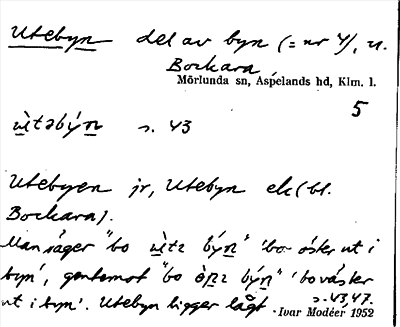 Utebyn del av byn (= nr 4), u.
Bockara
Mörlunda sn, Aspelands hd, Klm. l.
5
ùtəbýn s. 43
Utebyen jr, Utebyn ek (bl.
Bockara).
Man säger "bo ùtɪ býn" 'bo öster ut i
byn', gentemot "bo òpɪ býn" 'bo väster
ut i byn'. Utebyn ligger lågt. s. 43, 47.
Ivar Modéer 1952